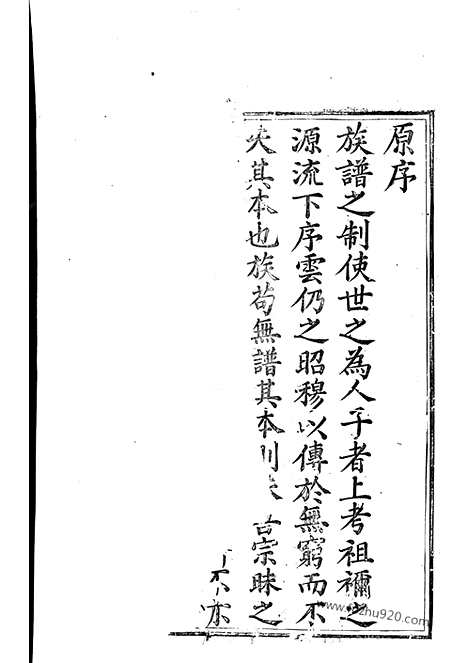 原序
族譜之制使世之為人子者上考祖禰之
源流下序雲仍之昭穆以傳於無窮而不
失其本也族苟無譜其本則失 宗昧之
不宗
www.jzhu920.com